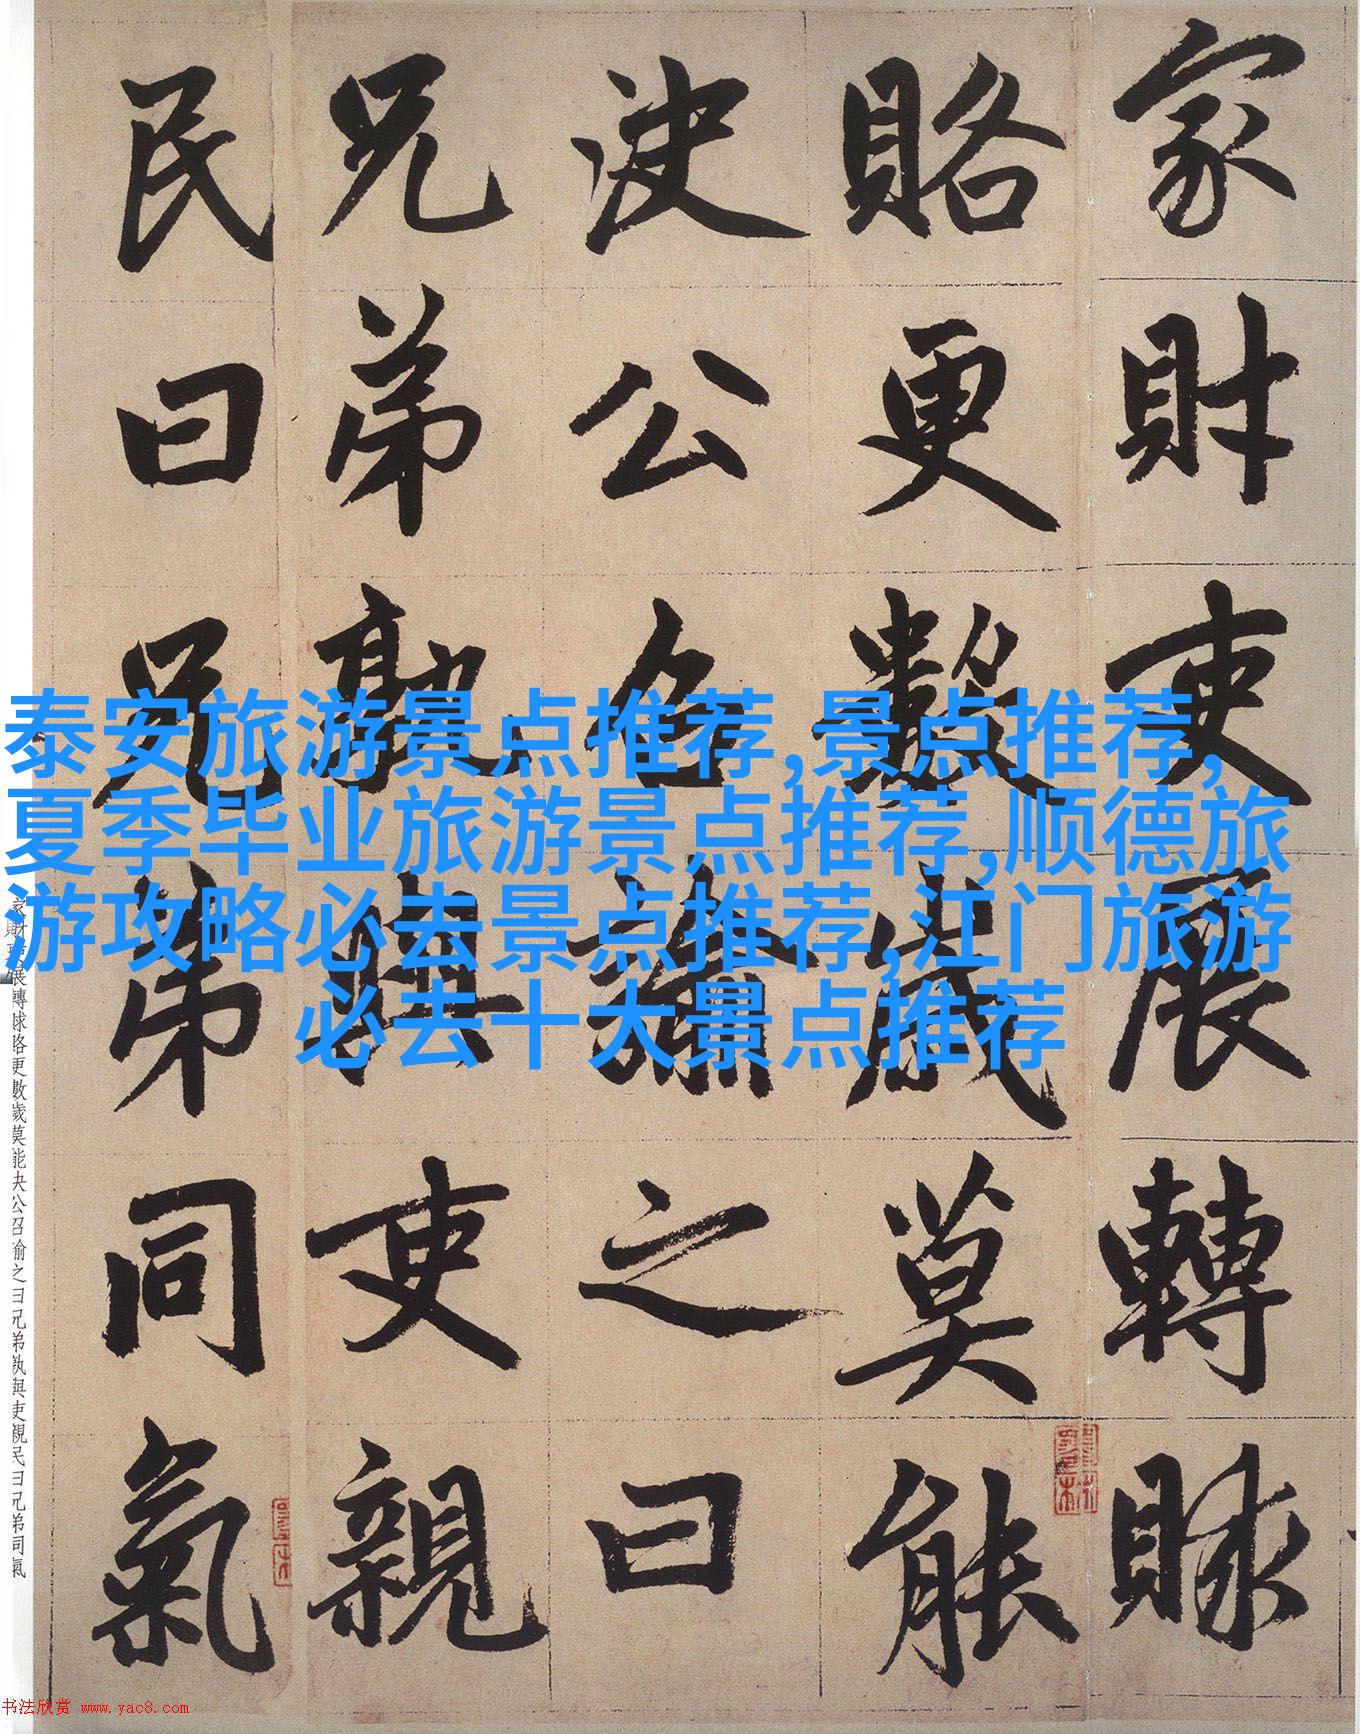 家財吏展轉賕
賂更數歲莫能
決公召諭之曰
兄弟孰與吏親
民曰兄弟同氣
泰安旅游景点推荐,景点推荐,
夏季毕业旅游景点推荐,顺德旅
游攻略必去景点推荐,江门旅游
必去十大景点推荐
家財吏展轉賕賂更數歲莫能决公召諭之曰兄弟孰與吏親民曰兄弟同氣
书法欣赏 www.yac8.com